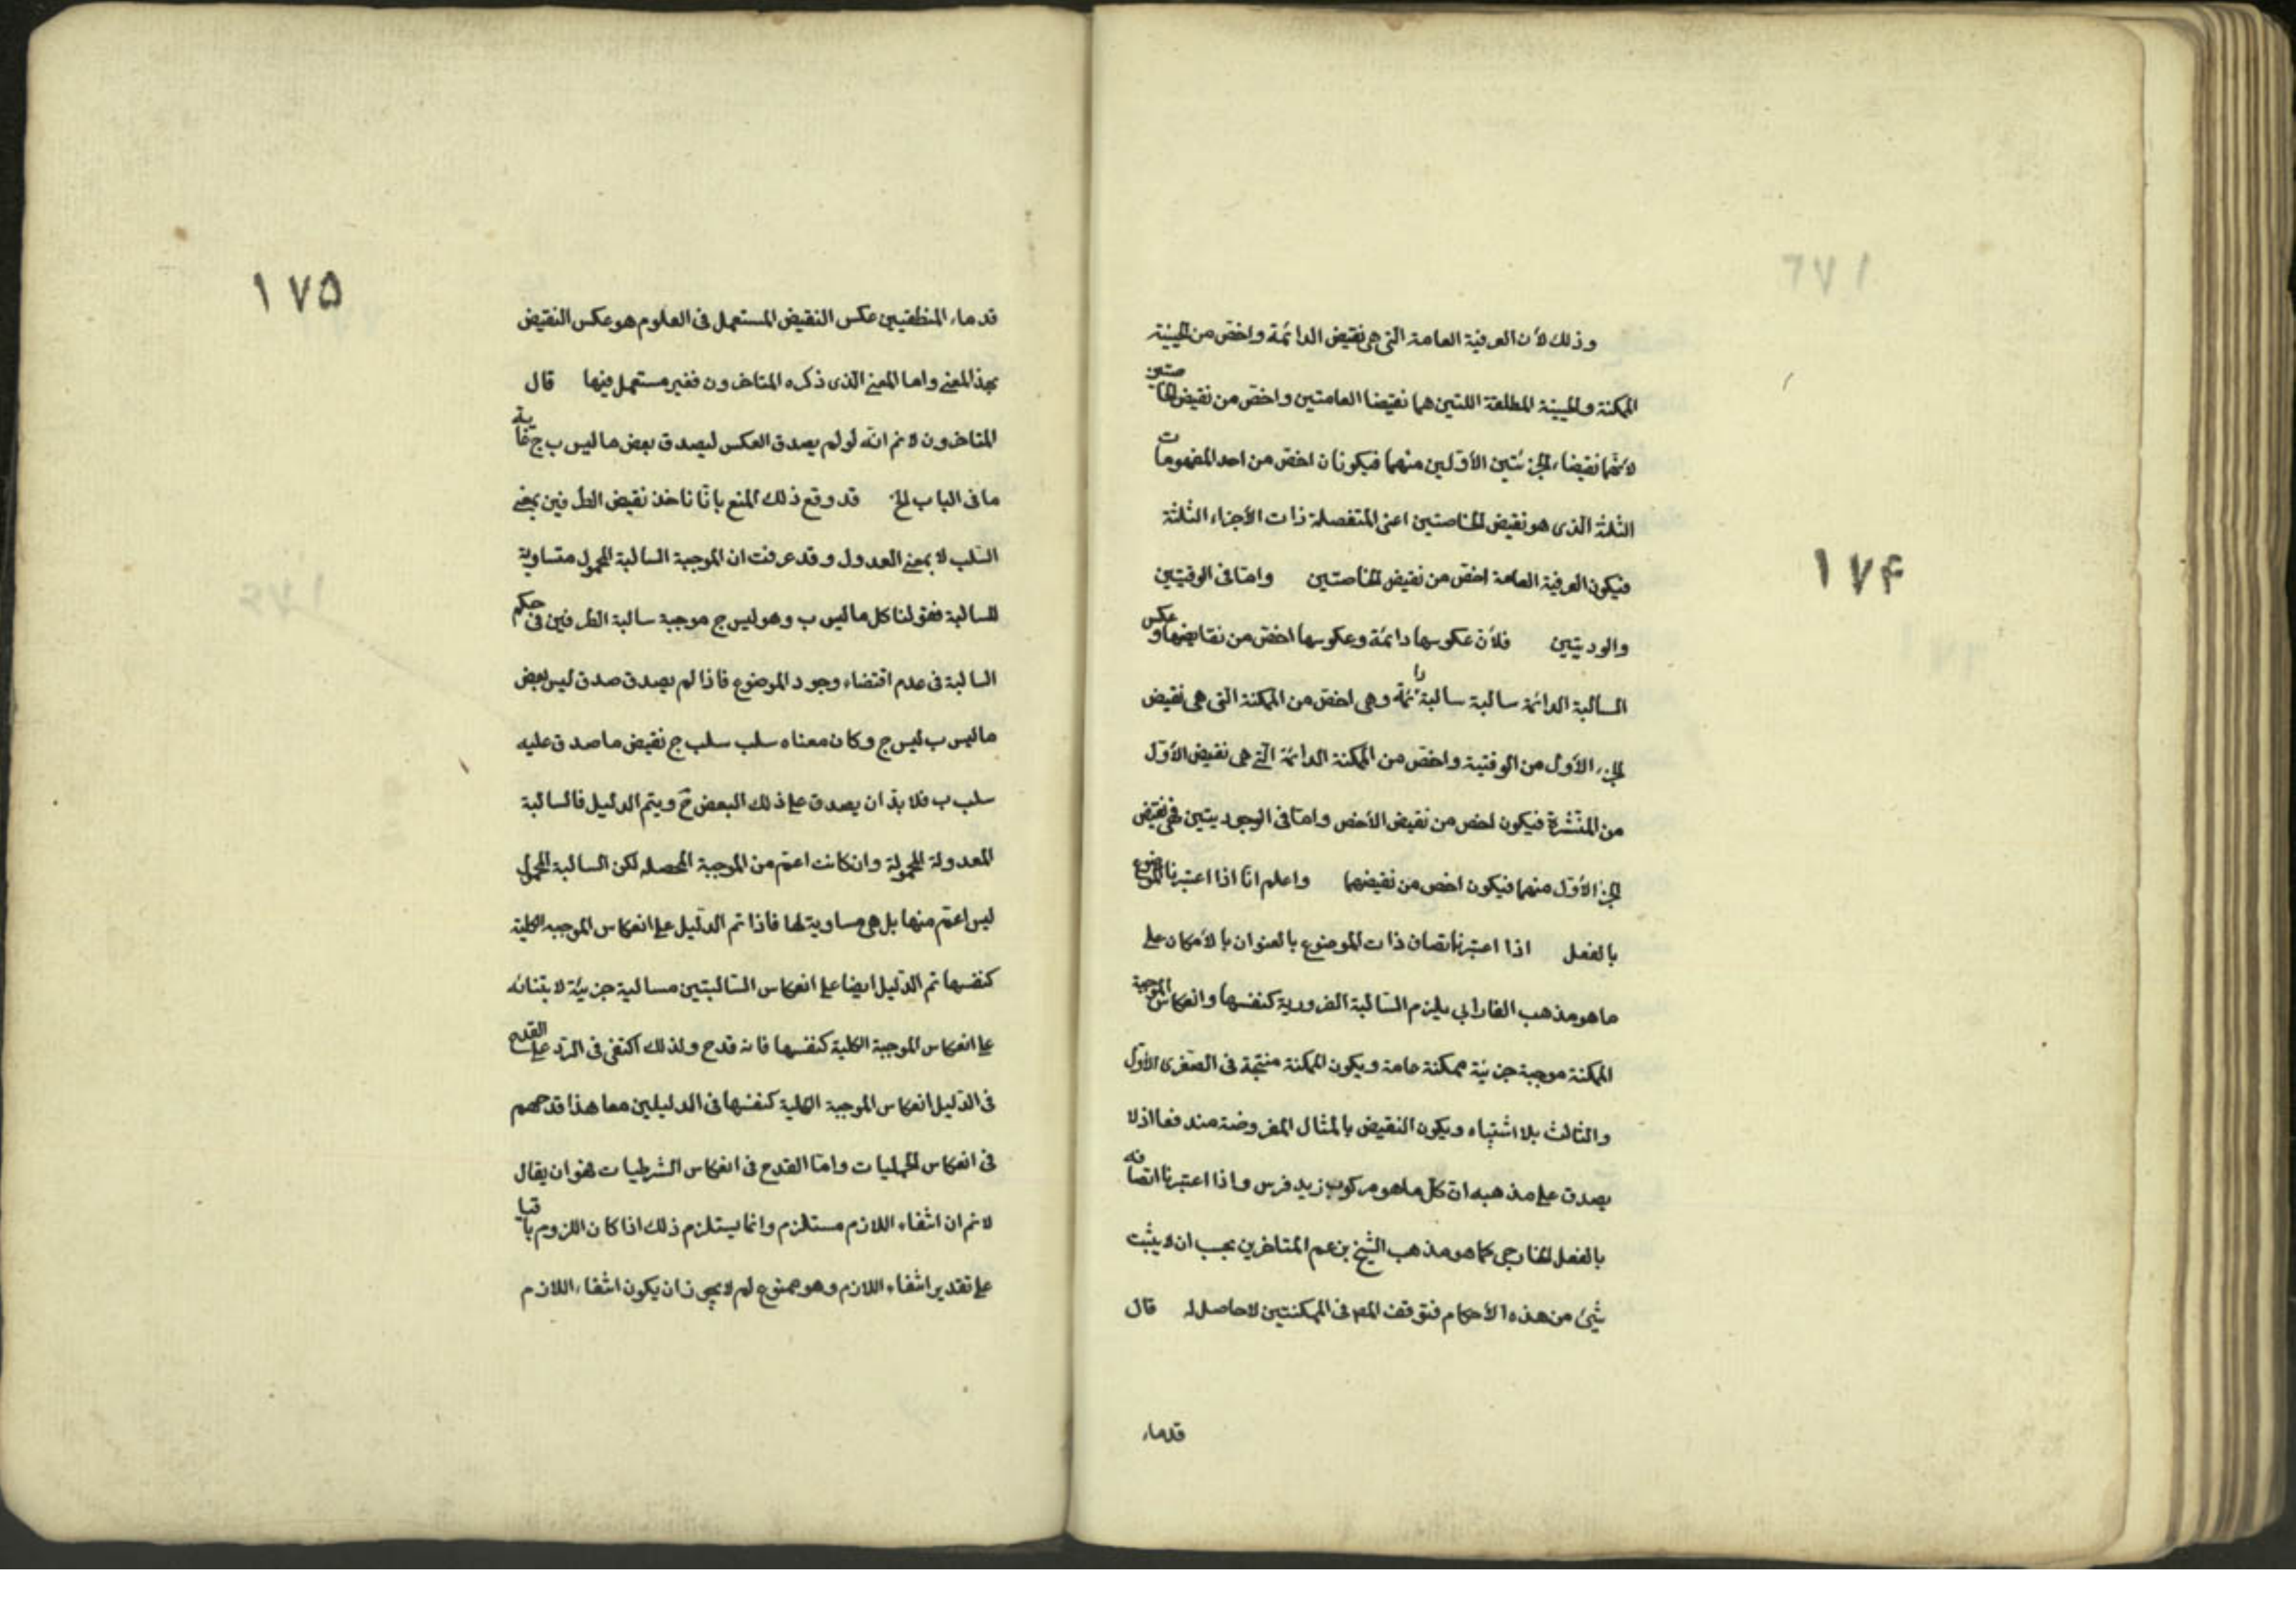 ١٧۴
وذلك لأن العرفية العامة التى هى نقيض الدائمة واخص من الحينية
الممكنة والحينية المطلقة اللتين هما نقيضا العامتين واخص من نقيض الخاصتين
لأنهما نقيضاء الجزئتين الأولين منهما فيكونان اخص من احد المفهومات
الثلثة الذى هو نقيض الخاصتين اعنى المنفصلة ذات الأجزاء الثلثة
فيكون العرفية العامة اخص من نقيض الخاصتين واما فى الوقتيتين
والوديتين فلأن عكوسها دائمة وعكوسها اخص من نقايضها وعكس
السالبة الدائمة سالبة سالبة دائمة وهى اخص من الممكنة التى هى نقيض
الجزء الأول من الوقتية واخص من الممكنة الدائمة التى هى نقيض الأول
من المنتشرة فيكون اخص من نقيض الأخص واما فى الوجوديتين فهى نقيض
الجزء الأول منهما فيكون اخص من نقيضهما واعلم انا اذا اعتبرنا الموضوع
بالفعل اذا اعتبرنا اتصاف ذات الموضوع بالعنوان بالأمكان على
ما هو مذهب الفارابي يلزم السالبة الضرورية كنفسها وانعكاس الموجبة
الممكنة موجبة جزئية ممكنة عامة ويكون الممكنة منتجة فى الصغرى الأول
والثالث بلا اشتباه ويكون النقيض بالمثال المفروضة مندفعا اذ لا
يصدق على مذهبه ان كل ما هو مركوب زيد فرس واذا اعتبرنا اتصافه
بالفعل الخارجى كما هو مذهب الشيخ بزعم المتاخرين يجب ان لا يثبت
شيئ من هذه الأحكام فتوقف المص فى الممكنتين لا حاصل له قال
قدماء
١٧۵
قدماء المنطقيين عكس النقيض المستعمل فى العلوم هو عكس النقيض
بهذا المعنى واما المعنى الذى ذكره المتاخرون فغير مستعمل فيها قال
المتاخرون لا نم انه لو لم يصدق العكس ليصدق بعض ما ليس ب ج غاية
ما فى الباب الخ قد وقع ذلك المنع بانا ناخذ نقيض الطرفين بمعنى
السلب لا بمعنى العدول وقد عرفت ان الموجبة السالبة المحمول متساوية
للسالبة فقولنا كل ما ليس ب وهو ليس ج موجبة سالبة الطرفين فى حكم
السالبة فى عدم اقتضاء وجود الموضوع فاذا لم يصدق صدق ليس بعض
ما ليس ب ليس ج وكان معناه سلب سلب ج نقيض ما صدق عليه
سلب ب فلا بد ان يصدق على ذلك البعض ج ويتم الدليل فالسالبة
المعدولة المحمولة وان كانت اعم من الموجبة المحصله لكن السالبة المحمول
ليس اعم منها بل هى مساوية لها فاذا تم الدليل على انعكاس الموجبه الكلية
كنفسها تم الدليل ايضا على انعكاس السالبتين سالبة جزئية لابتنائه
على انعكاس الموجبة الكلية كنفسها فانه قدح ولذلك اكتفى فى الرد على القدح
فى الدليل انعكاس الموجبة الكلية كنفسها فى الدليلين معا هذا قدحهم
فى انعكاس الحمليات واما القدح فى انعكاس الشرطيات فهو ان يقال
لا نم ان انتفاء اللازم مستلزم وانما يستلزم ذلك اذا كان اللزوم باقيا
على تقدير انتفاء اللازم وهو ممنوع لم لا يجوز ان يكون انتفاء اللازم